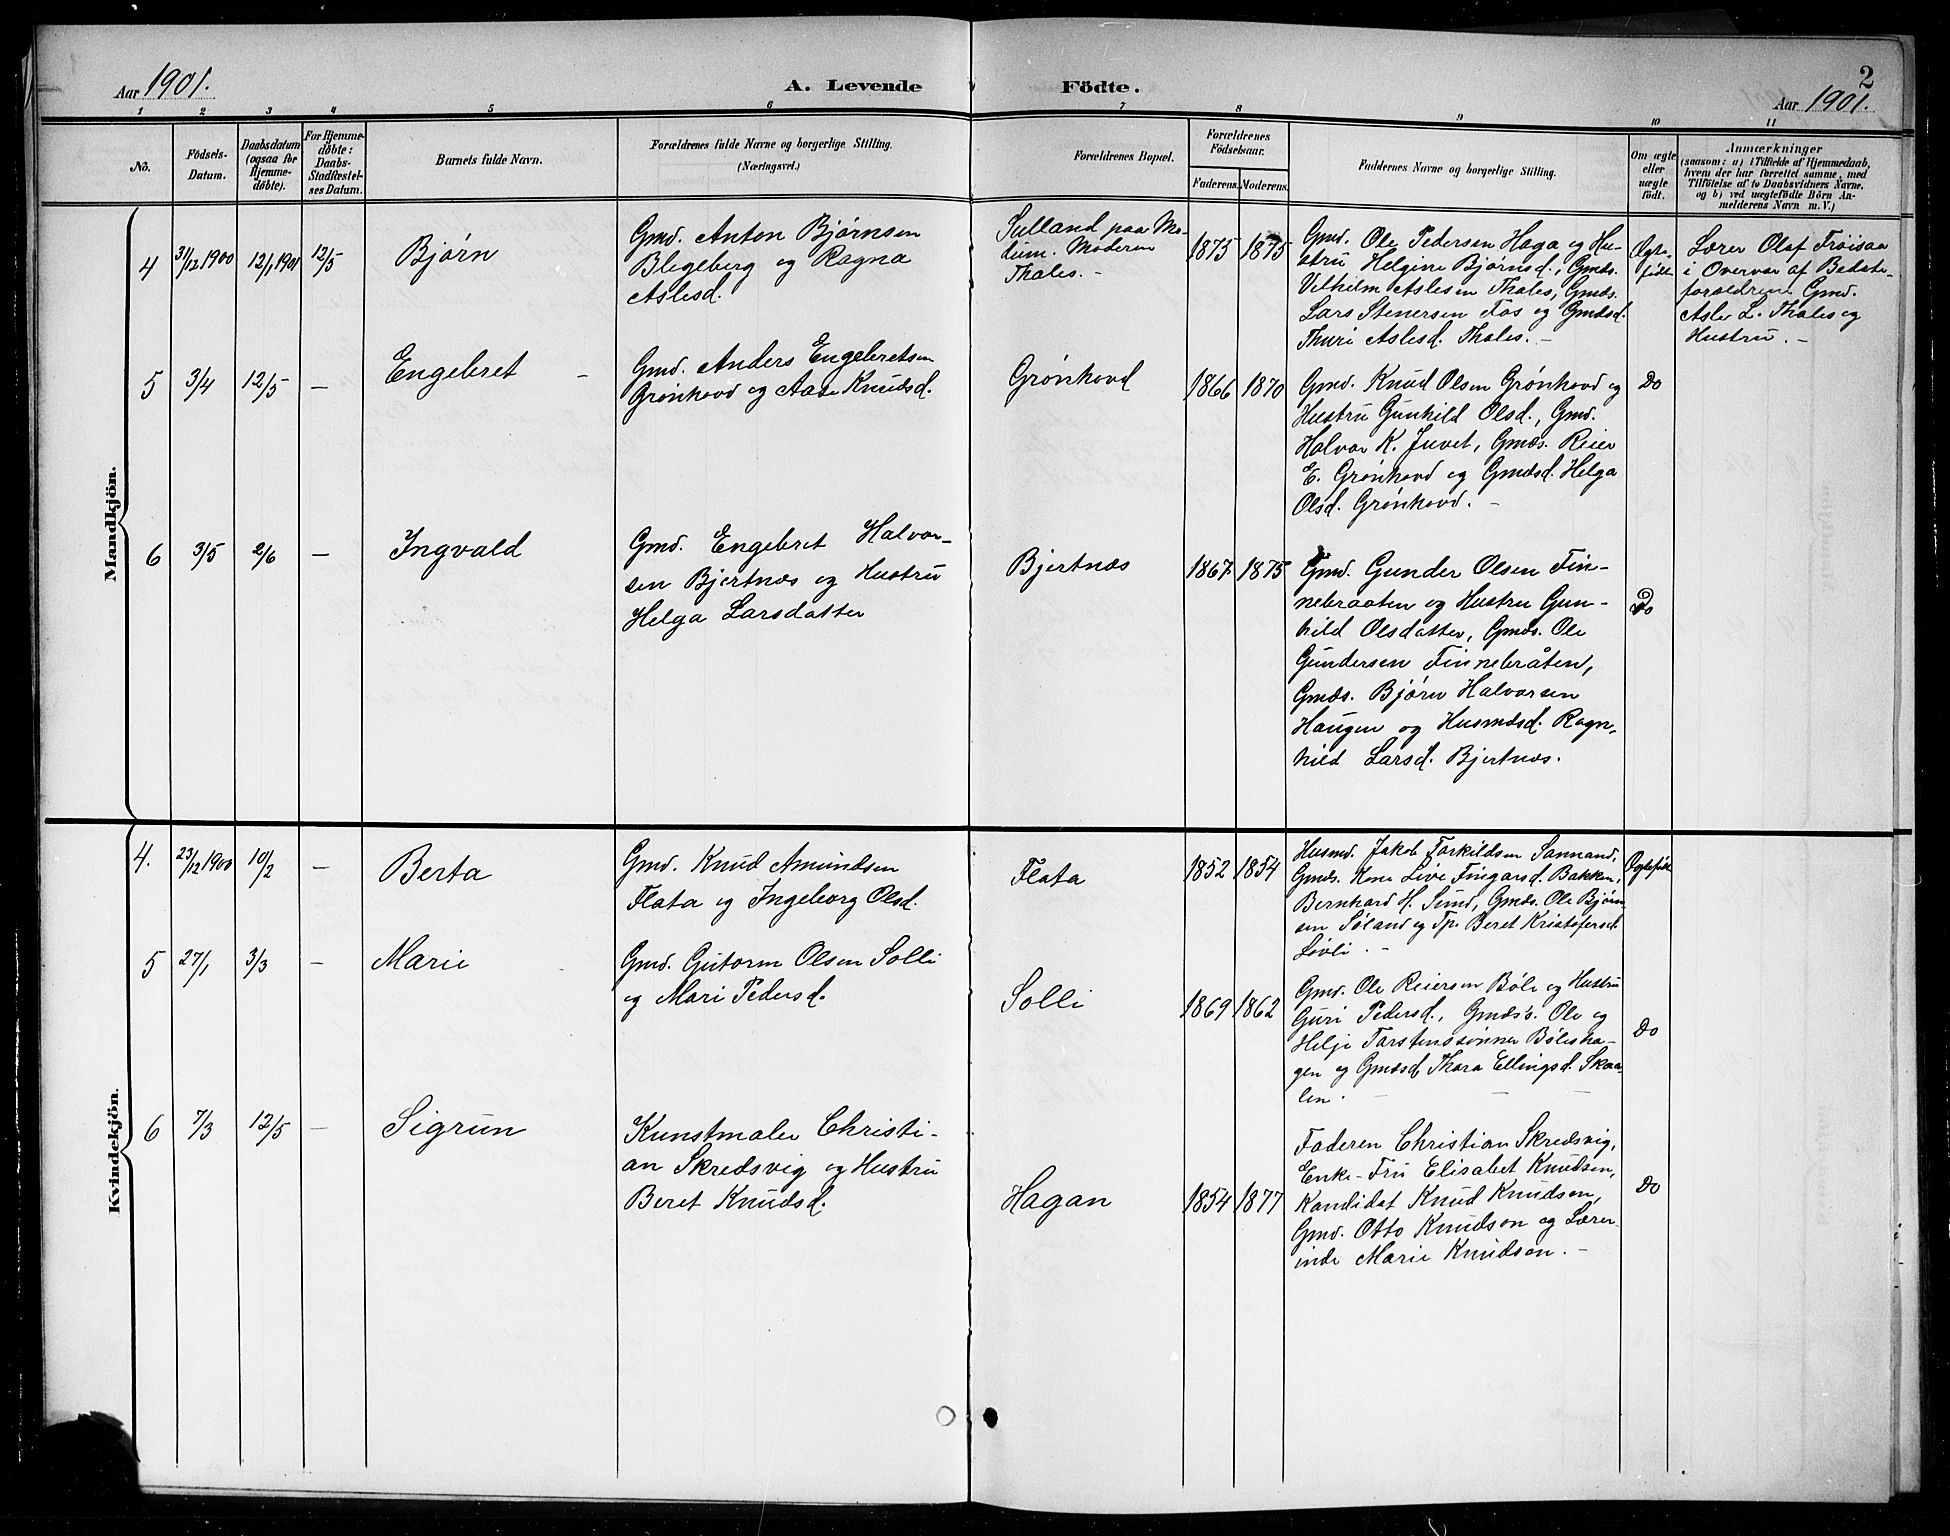 Aar 1901.
A. Levende Födte.
2
Aar 1901.
1 2 3 4 5 6 7 8 9 10 11
No.
Födsels-
Datum.
Daabsdatum
(ogsaa for
Hjemme-
döbte).
For Hjemme-
döbte:
Daabs-
Stadfæstel-
ses Datum.
Barnets fulde Navn.
Forældrenes fulde Navne og borgerlige Stilling.
(Næringsvei.)
Forældrenes Bopæl.
Forældrenes
Födselsaar.
Faderens.
Moderens.
Faddernes Navne og borgerlige Stilling.
Om ægte
eller
uægte
födt.
Anmærkninger
(saasom: a) i Tilfælde af Hjemmedaab,
hvem der har forrettet samme, med
Tilföielse af to Daabsvidners Navne,
og b) ved uægtefödte Börn An-
melderens Navn m. V.)
Mandkjön.
4
31/12 1900
12/1 1901
12/5
Bjørn
Gmd. Anton Bjørnsen
Blegeberg og Ragna
Aslesd.
Sulland paa Mo-
dum. Moderen
Thales. -
1875
1875
Gmd. Ole Pedersen Haga og Hu-
stru Helgine Bjørnsd., Gmds.
Vilhelm Aslesen Thales, Gmds.
Lars Stenersen Fos og Gmdsd.
Thuri Aslesd. Thales. -
Ægte-
født
Lærer Olaf Frøisaa
i Overvær af Bedste-
forældrene Gmd.
Asle L. Thales og
Hustru. -
5
3/4
12/5
-
Engebret -
Gmd. Anders Engebretsen
Grønhovd og Aase Knudsd.
Grønhovd
1866
1870
Gmd. Knud Olsen Grønhovd og
Hustru Gunhild Olsd., Gmd.
Halvor K. Juvet, Gmds. Reier
E. Grønhovd og Gmdsd. Helga
Olsd. Grønhovd. -
Do
6
3/5
2/6
-
Ingvald
Gmd. Engebret Halvor-
sen Bjertnæs og Hustru
Helga Larsdatter
Bjertnæs
1867
1875
Gmd. Gunder Olsen Fin-
nebraaten og Hustru Gun-
hild Olsdatter, Gmds. Ole
Gundersen Finnebråten,
Gmds. Bjørn Halvorsen
Haugen og Husmdsd. Ragn-
hild Larsd. Bjertnæs.
Do
Kvindekjön.
4.
23/12 1900
10/2
-
Berta
Gmd. Knud Amundsen
Flata og Ingeborg Olsd.
Flata
1852
1854
Husmd. Jakob Torkildsen Sannand,
Gmds. Kone Live Fingarsd. Bakken,
Bernhard H. Sund, Gmds. Ole Bjørn-
sen Søland og Tp. Beret Kristofersd.
Løvli. -
Ægtefødt
5
27/1
3/3
-
Marie
Gmd. Gutorm Olsen Solli
og Mari Pedersd.
Solli
1869
1862
Gmd. Ole Reiersen Bøle og Hustru
Guri Pedersd., Gmds's. Ole og
Helje Torstenssønner Bølesha-
gen og Gmdsd Thora Ellingsd. Skaa-
len. - - -
Do
6
7/3
12/5
-
Sigrun
Kunstmaler Christi-
an Skredsvig og Hustru
Beret Knudsd.
Hagan
1854
1877
Faderen Christian Skredsvig,
Enke-Fru Elisabet Knudsen,
Kandidat Knud Knudson,
Gmd. Otto Knudson og Lærer-
inde Marie Knudson. -
Do